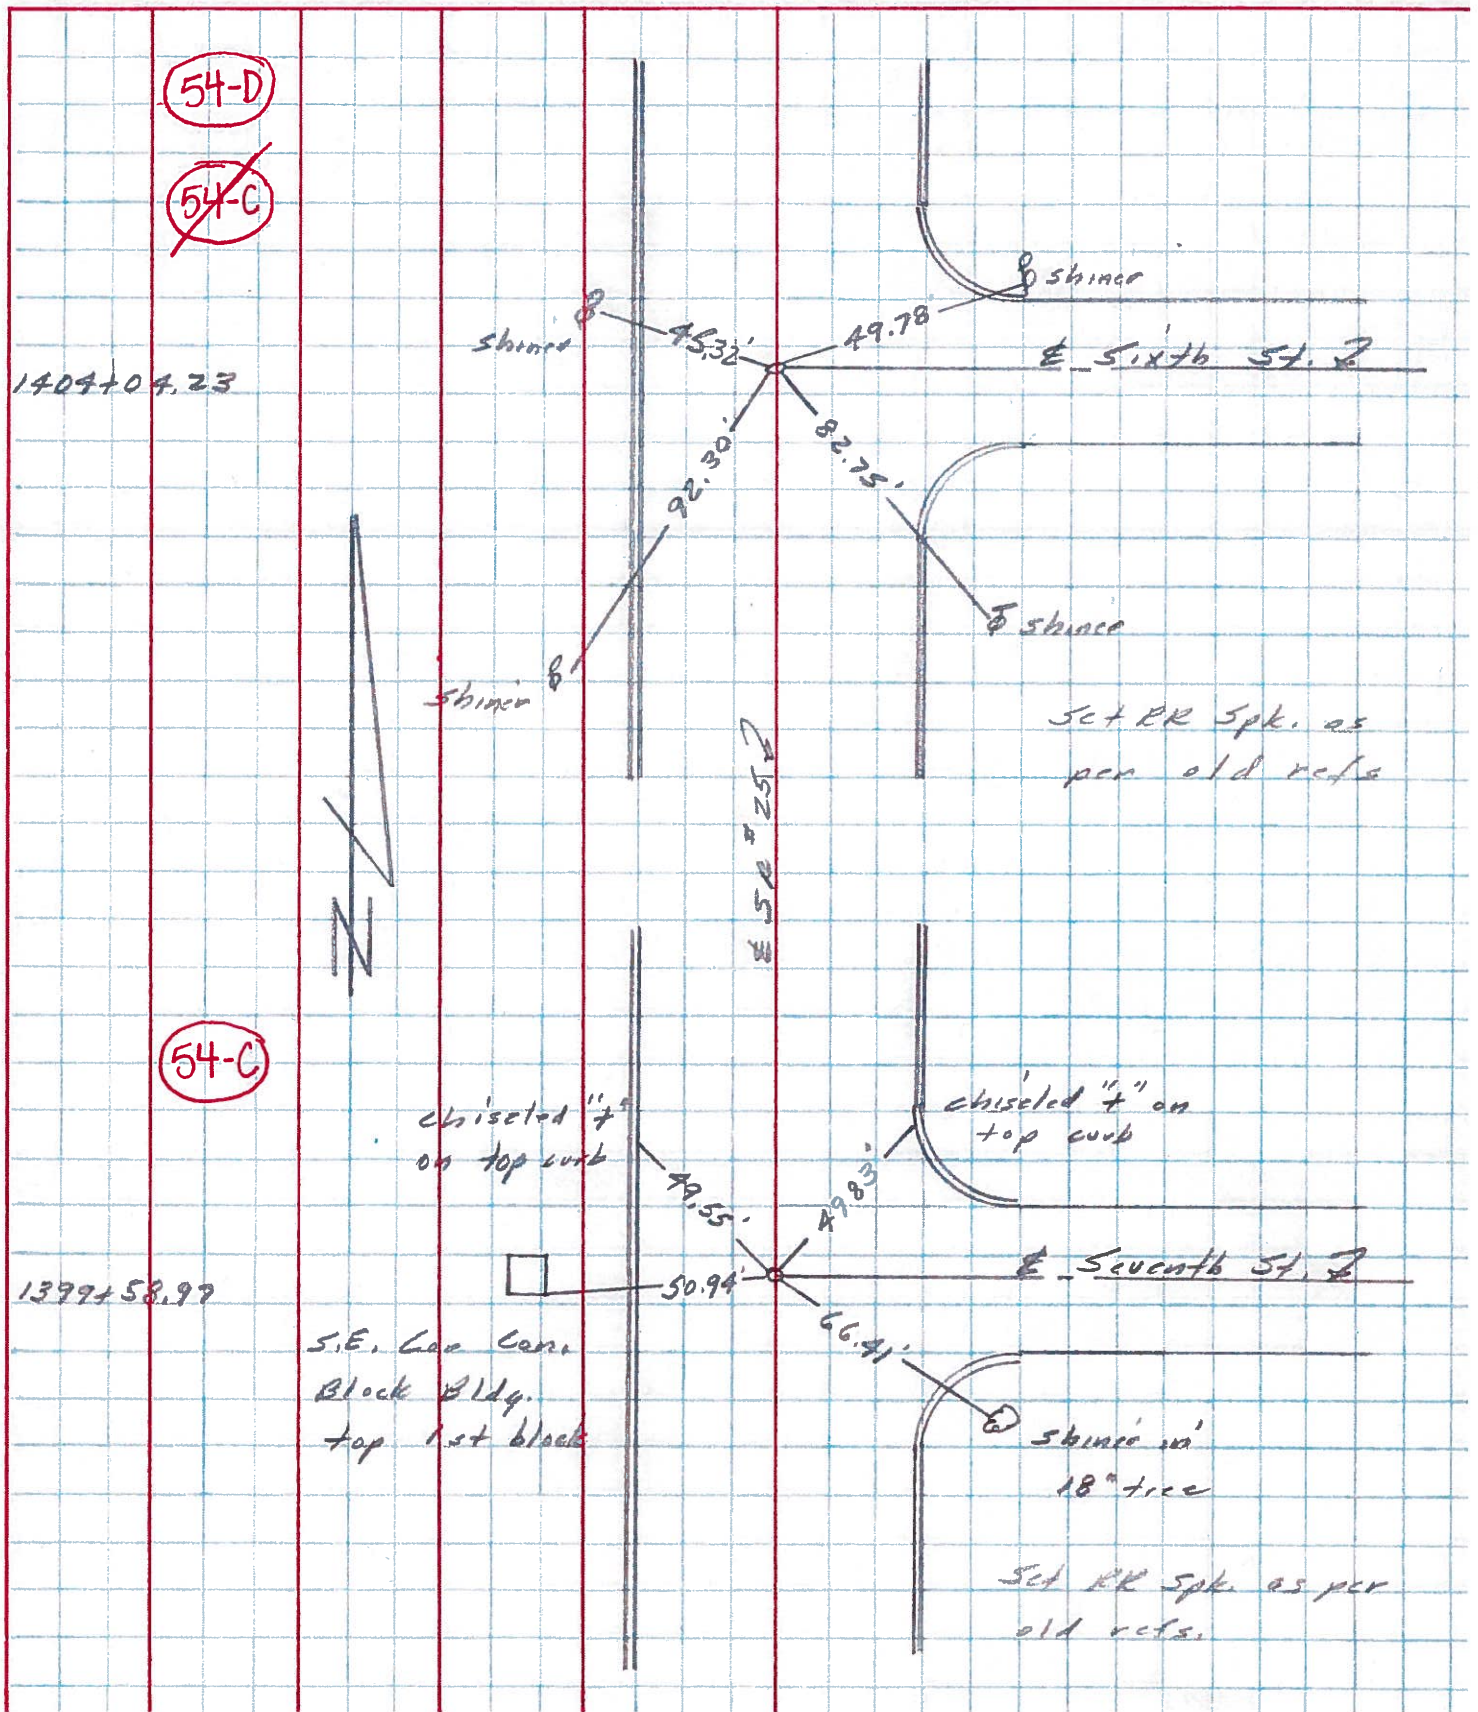 54-D
54-C
shiner
shiner
45.32'
49.78'
℄ Sixth St.
1404+04.23
92.30'
82.75'
shiner
shiner
Set RR Spk. as
per old refs
℄ SR #25
N
54-C
chiseled "+"
on top curb
chiseled "+" on
top curb
49.55'
49.83'
℄ Seventh St.
50.94'
1399+58.97
66.41'
S.E. Cor Con.
Block Bldg.
top 1st block
shiner in
18" tree
Set RR Spk. as per
old refs.